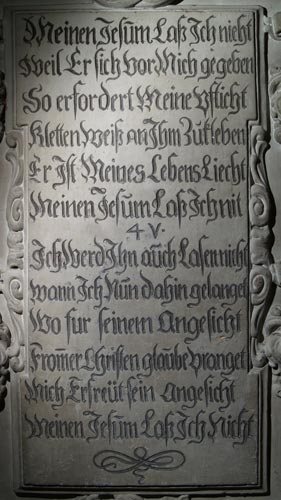 Meinen Jesum Laß Jch nicht
Weil Er sich vor Mich gegeben
So erfordert Meine Pflicht
Kletten Weiß An Jhm Zükleben
Er Jst Meines Lebens Liecht
Meinen Jesum Laß Jch nit
4 V.
Jch Werd Jhn aüch Lasen nicht
Wann Jch Nün dahin gelanget
Wo fur seinem Angesicht
From̅er Christen glaübe pranget
Mich Erfreüt sein Angesicht
Meinen Jesum Laß Jch Nicht